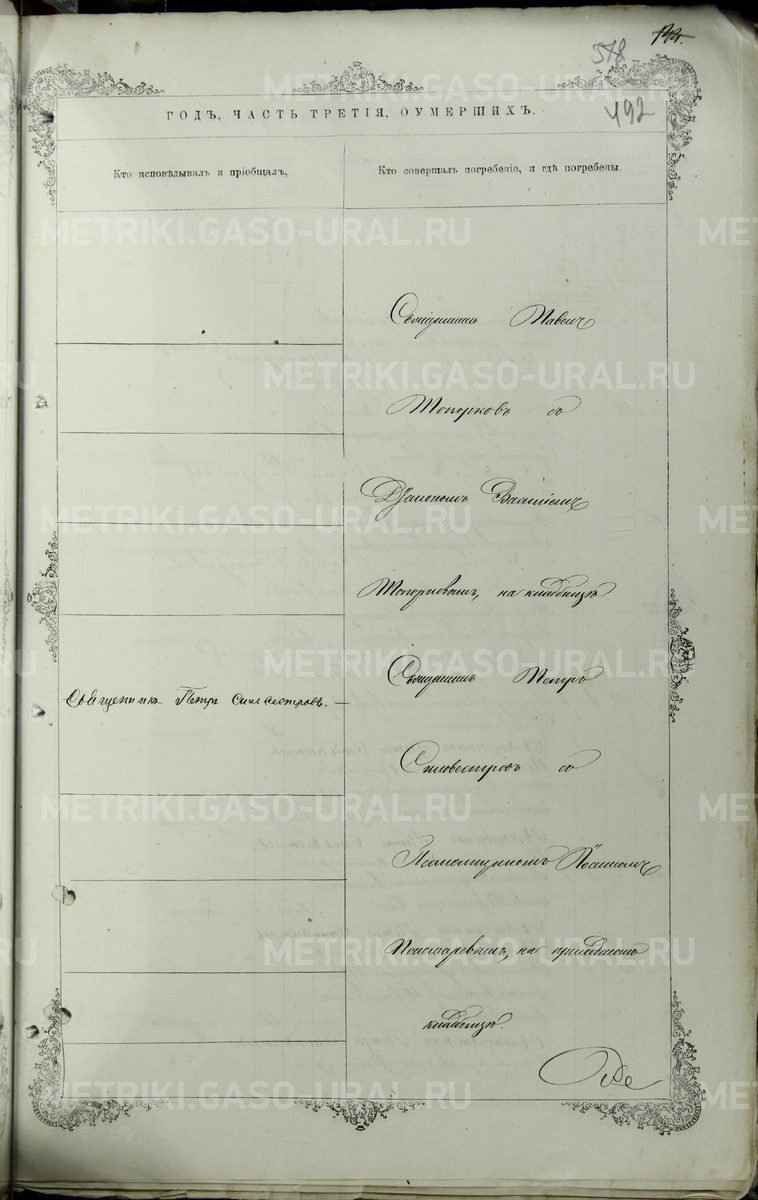 578
492
ГОДЪ, ЧАСТЬ ТРЕТІЯ, ОУМЕРШИХЪ.
Кто исповѣдывалъ и пріобщалъ.
Кто совершалъ погребеніе, и гдѣ погребены.
Священникъ Петръ Силвестровъ.
Священникъ Павелъ
Топорковъ съ
Дьякономъ Василіемъ
Топорковымъ, на кладбищѣ
Священникъ Петръ
Силвестровъ съ
Псаломщикомъ Іоанномъ
Пономаревымъ, на приходскомъ
кладбищѣ.
METRIKI.GASO-URAL.RU